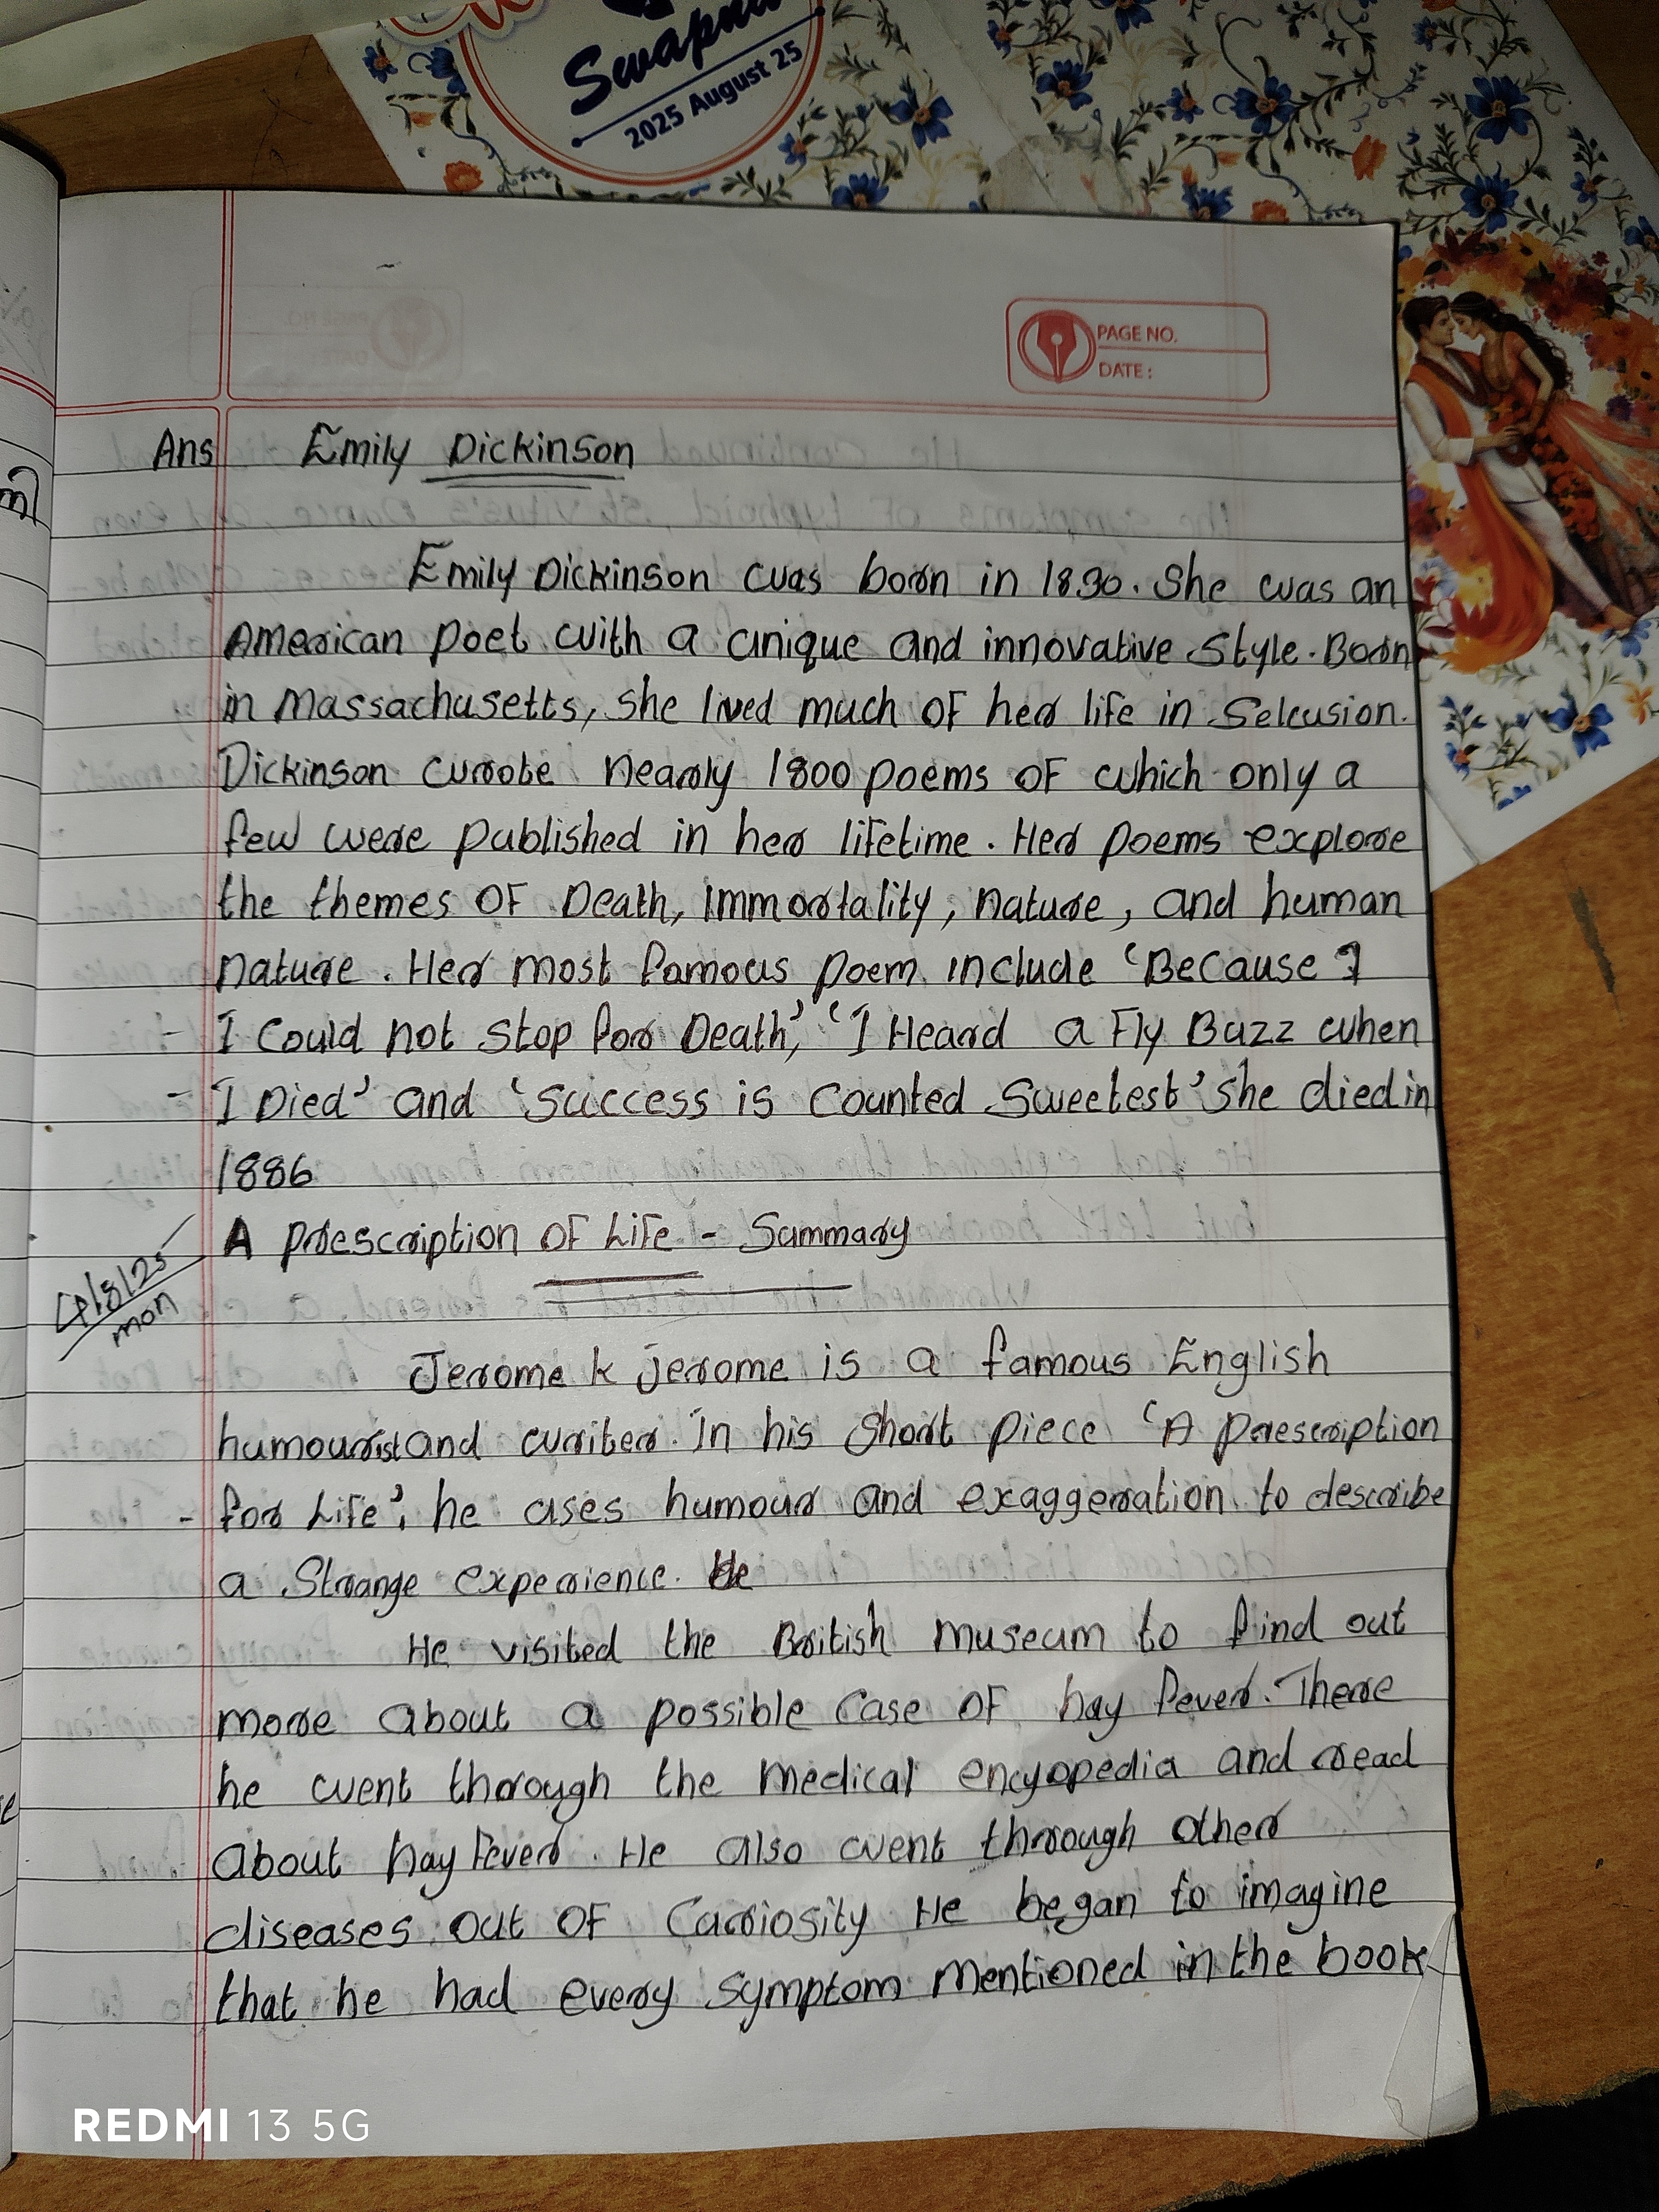 Swapna
2025 August 25
PAGE NO.
DATE:
Ans Emily Dickinson
Emily Dickinson was born in 1830. She was an
American poet with a unique and innovative style. Born
in Massachusetts, she lived much of her life in Selcusion.
Dickinson wrote nearly 1800 poems of which only a
few were published in her lifetime. Her poems explore
the themes of Death, immortality, nature, and human
nature. Her most famous poem include 'Because I
- I Could not stop for Death,' 'I Heard a Fly Buzz when
- I Died' and 'Success is Counted Sweetest' she died in
1886
A prescription of Life - Summary
4/8/25
mon
Jerome k jerome is a famous English
humourist and writer. In his short piece 'A prescription
- for Life', he uses humour and exaggeration to describe
a Strange experience. He
He visited the British museum to find out
more about a possible case of hay fever. There
he went through the medical encyopedia and read
about hay fever. He also went through other
diseases out of Curiosity He began to imagine
that he had every symptom mentioned in the book
REDMI 13 5G